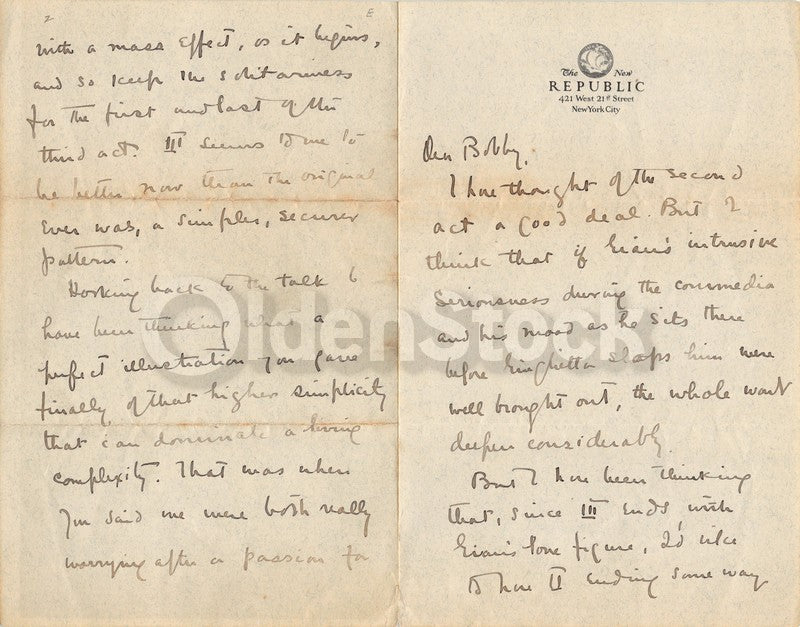 The New
REPUBLIC
421 West 21st Street
New York City
Dear Bobby,
I have thought of the second
act a good deal. But I
think that if Gian's intrusive
seriousness during the commedia
and his mood as he sits there
before Giughetta slaps him were
well brought out, the whole want
deepen considerably.
But I have been thinking
that, since III ends, with
Gian's love figure, I'd like
to have II ending some way
2
E
with a mass effect, as it begins,
and so keep the solitariness
for the first and last of the
third act. III seems to me to
be better now than the original
ever was, a simpler, securer
pattern.
Working back to the talk I
have been thinking what a
perfect illustration you gave
finally of that higher simplicity
that can dominate a living
complexity. That was when
you said we were both really
worrying after a passion for
OldenStock